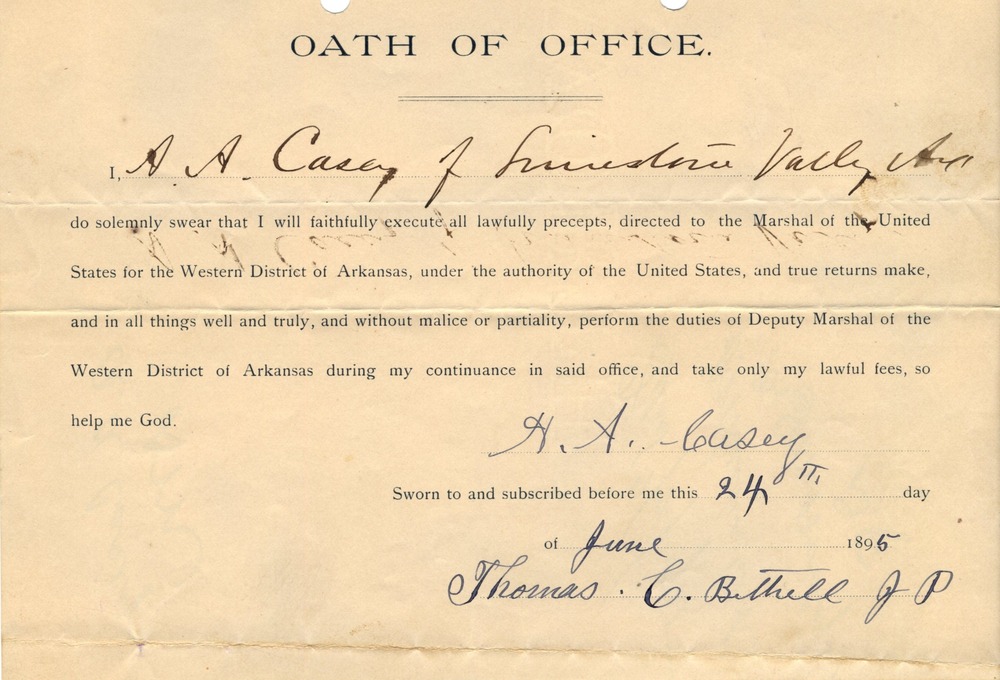 OATH OF OFFICE.
I, A. A. Casey of Limestone Valley Ark
do solemnly swear that I will faithfully execute all lawfully precepts, directed to the Marshal of the United
States for the Western District of Arkansas, under the authority of the United States, and true returns make,
and in all things well and truly, and without malice or partiality, perform the duties of Deputy Marshal of the
Western District of Arkansas during my continuance in said office, and take only my lawful fees, so
help me God.
H. A. Casey
Sworn to and subscribed before me this 24th day
of June 1895
Thomas. C. Bethell J P